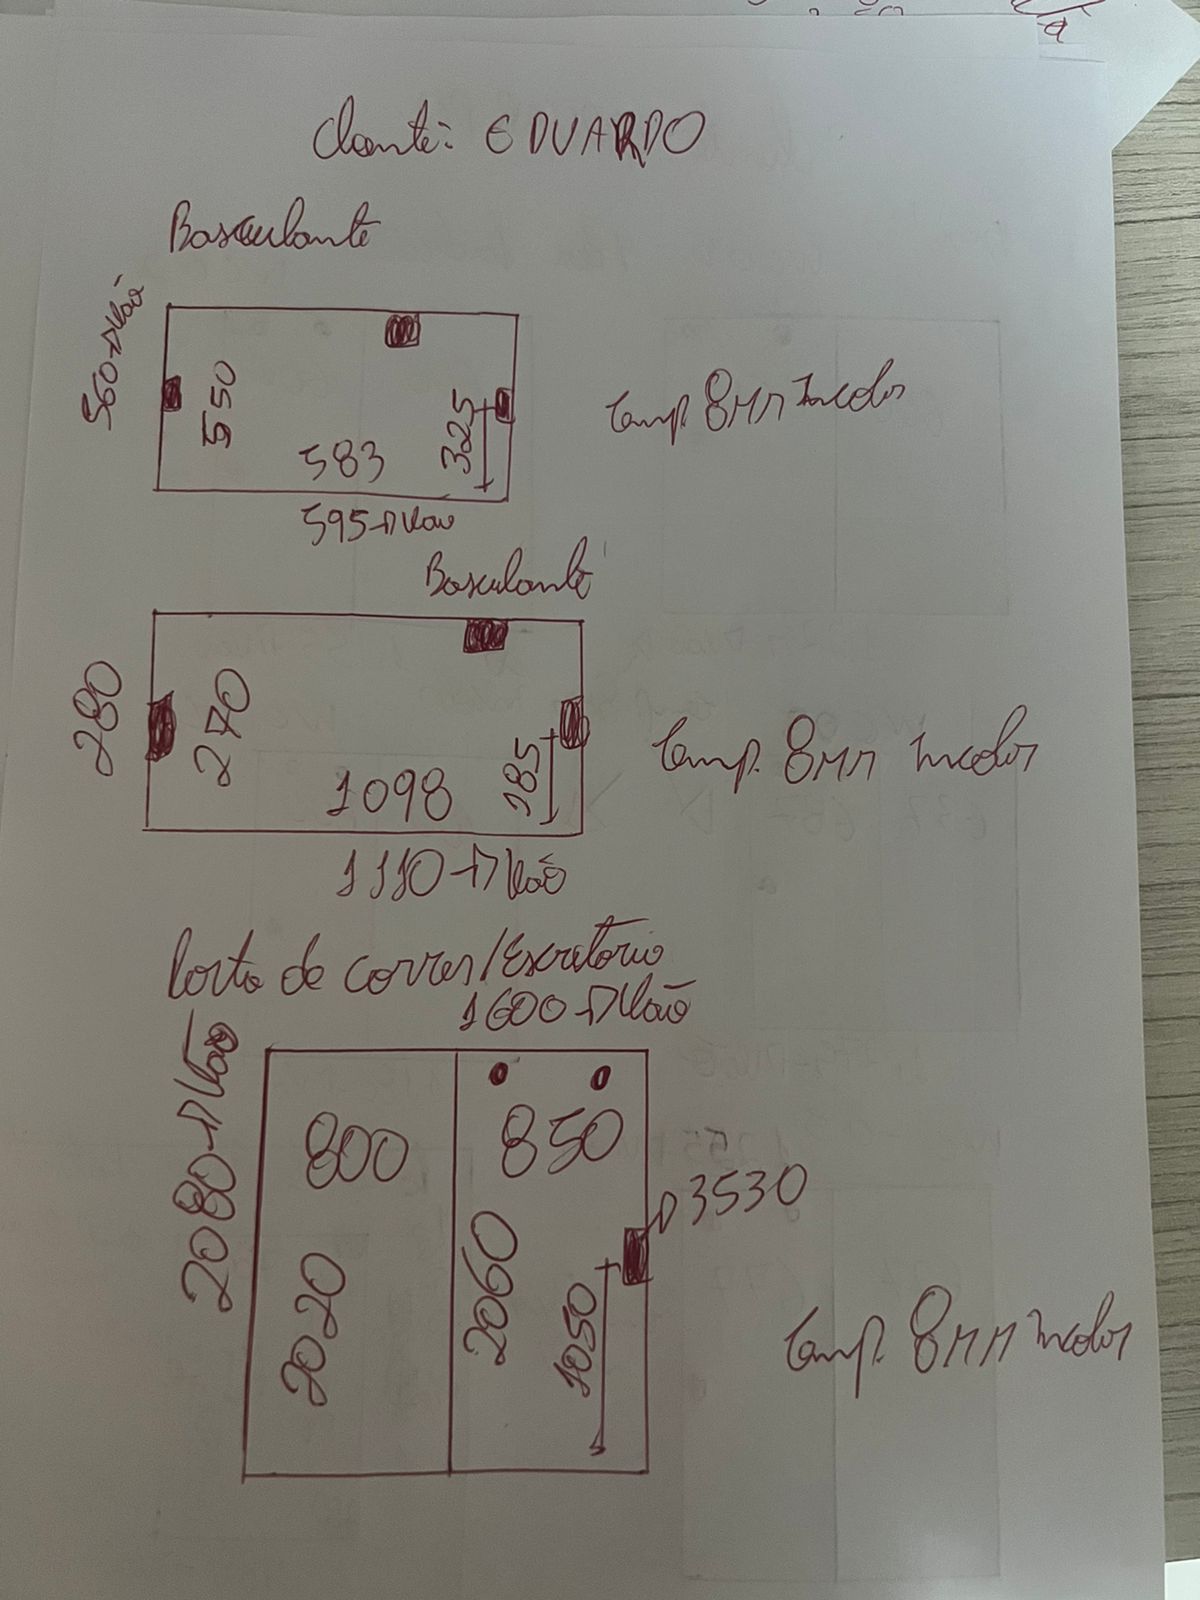 Cliente: EDUARDO
Basculante
560 → Vão
550
325
583
595 → Vão
Temp. 8MM Incolor
Basculante
280
270
185
1098
1110 → Vão
Temp. 8MM Incolor
Porta de correr/Escritório
1600 → Vão
2080 → Vão
800
850
→ 3530
2020
2060
1050
Temp. 8MM Incolor